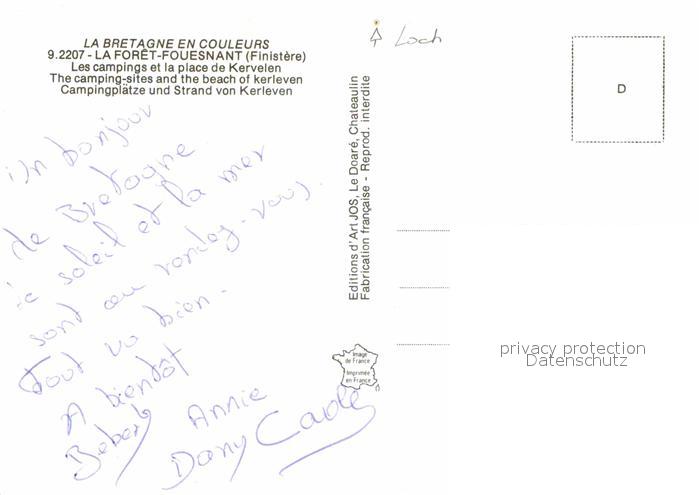 LA BRETAGNE EN COULEURS
9.2207 - LA FORÊT-FOUESNANT (Finistère)
Les campings et la place de Kervelen
The camping-sites and the beach of kerleven
Campingplätze und Strand von Kerleven
Un bonjour
de Bretagne
le soleil et la mer
sont au rendez-vous.
Tout va bien.
A bientôt
Bebert Annie
Dany Carole
Editions d'Art JOS, Le Doaré, Chateaulin
Fabrication française - Reprod. interdite
Image
de France
Imprimée
en France
Loch
D
privacy protection
Datenschutz